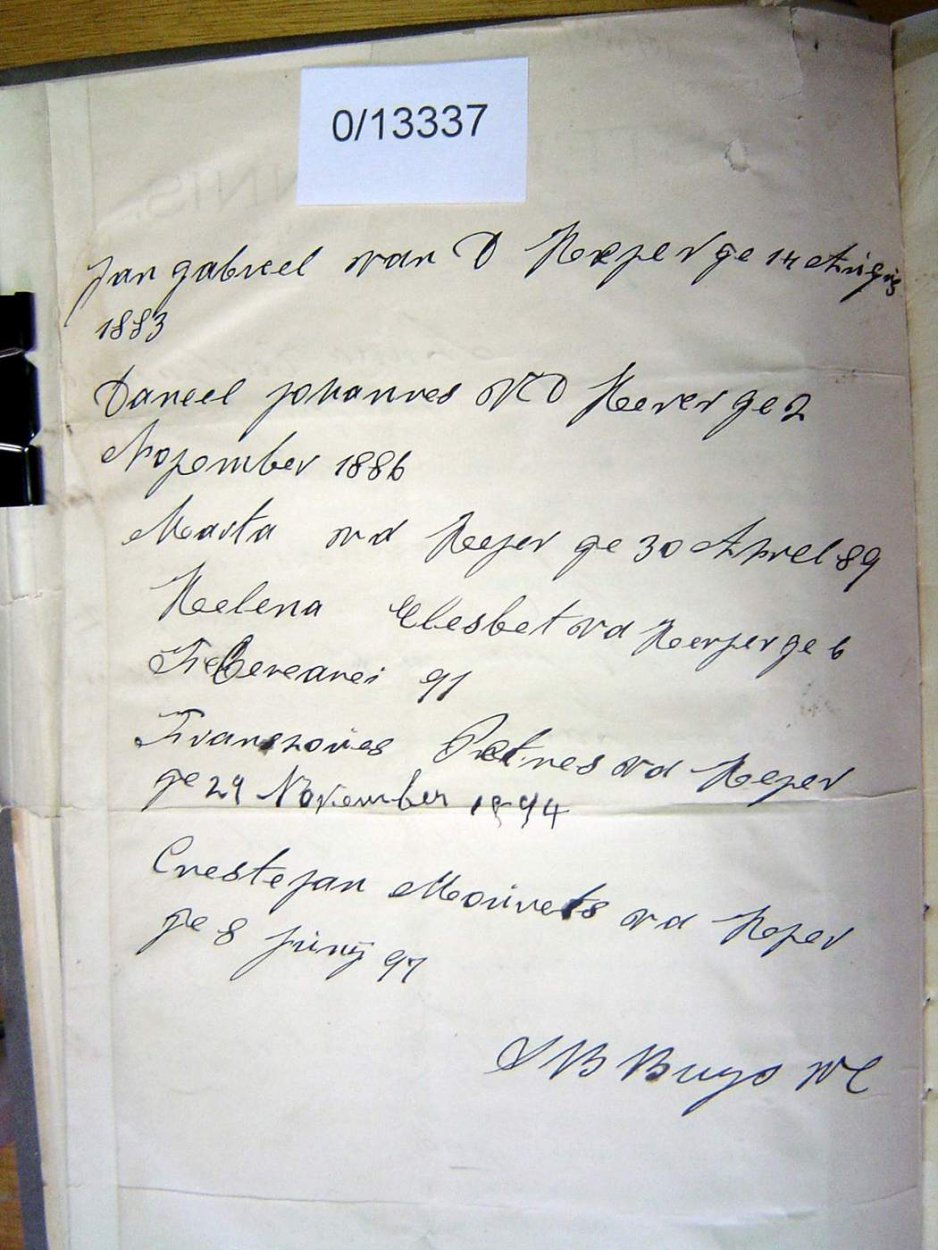 0/13337
Jan gabreel van D Heeper ge 14 Augus
1883
Daneel johannes v D Hever ge 2
November 1886
Marta vd Heper ge 30 Aprel 89
Helena Elesbet vd Heeper ge 6
Feberearei 91
Fransoces Petres vd Heper
ge 29 November 1894
Crestejan Mourets vd Heper
ge 8 juny 97